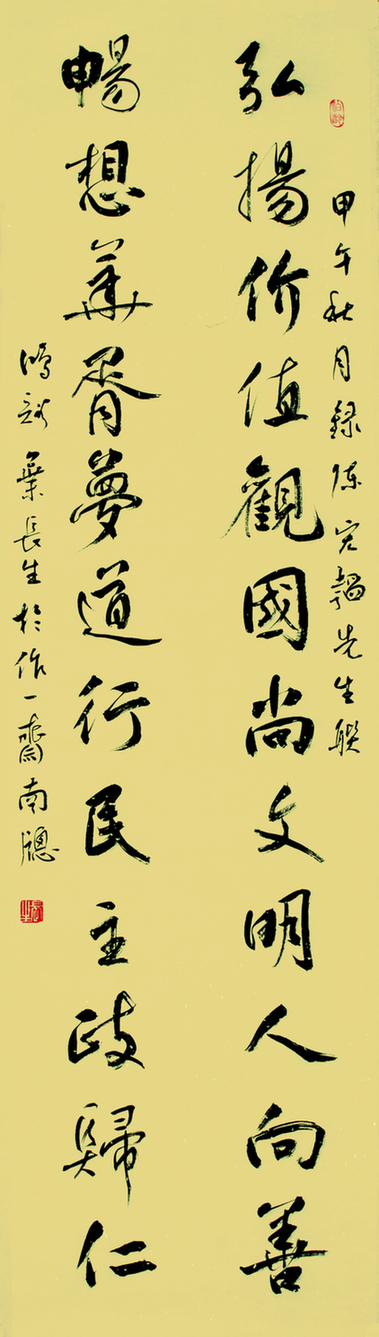 甲午秋月録陈先生联
弘揚价值觀國尚文明人向善
暢想華胥夢道行民主政歸仁
葉長生於作一齋南牕